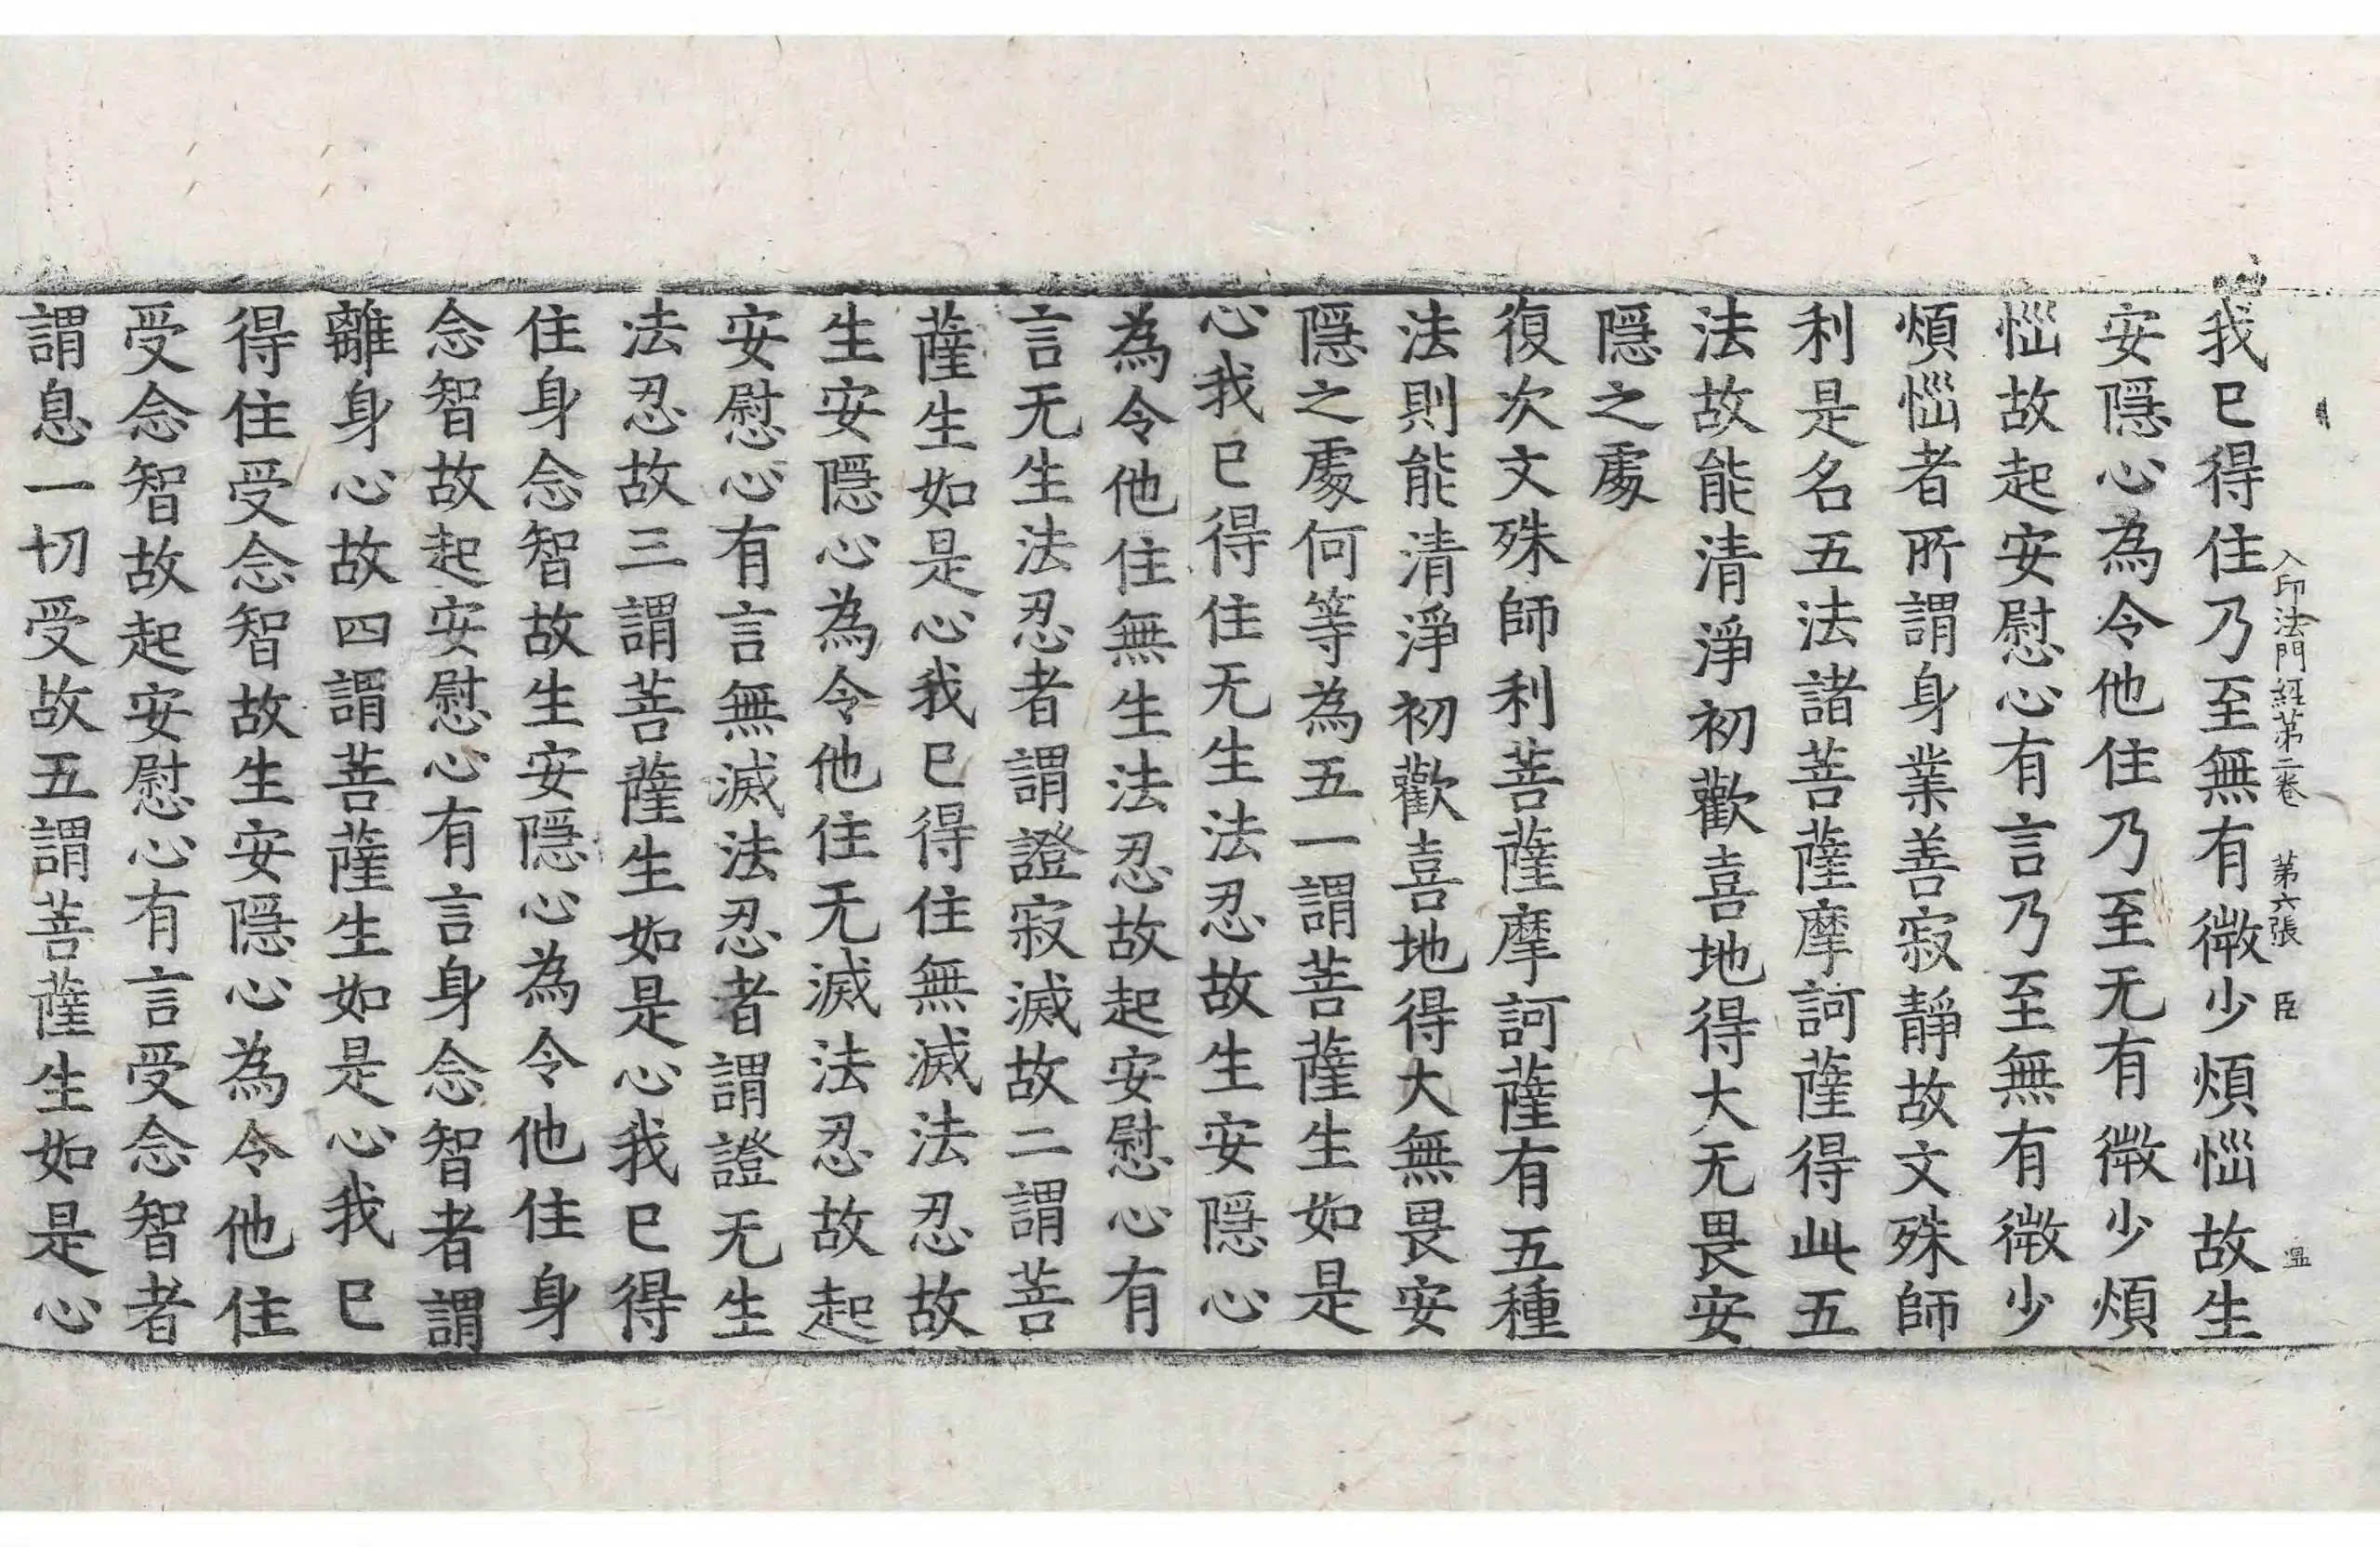 入印法門経苐二巻 第六張 臣
我已得住乃至無有微少煩惱故生
安隱心為令他住乃至无有微少煩
惱故起安慰心有言乃至無有微少
煩惱者所謂身業善寂靜故文殊師
利是名五法諸菩薩摩訶薩得此五
法故能清淨初歡喜地得大无畏安
隱之處
復次文殊師利菩薩摩訶薩有五種
法則能清淨初歡喜地得大無畏安
隱之處何等為五一謂菩薩生如是
心我已得住无生法忍故生安隱心
為令他住無生法忍故起安慰心有
言无生法忍者謂證寂滅故二謂菩
薩生如是心我已得住無滅法忍故
生安隱心為令他住无滅法忍故起
安慰心有言無滅法忍者謂證无生
法忍故三謂菩薩生如是心我已得
住身念智故生安隱心為令他住身
念智故起安慰心有言身念智者謂
離身心故四謂菩薩生如是心我已
得住受念智故生安隱心為令他住
受念智故起安慰心有言受念智者
謂息一切受故五謂菩薩生如是心